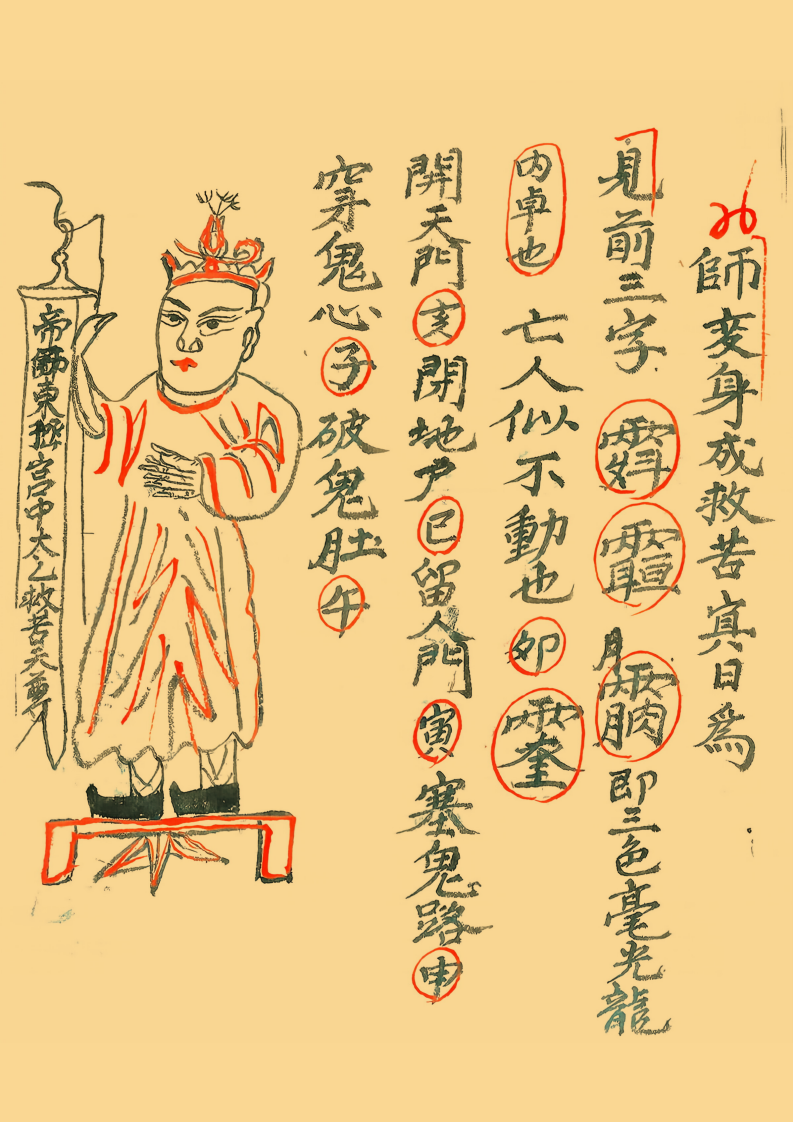 師变身成救苦真日為
見前三字 即三色毫光龍
内卓也 亡人似不動也 卯
開天門亥閉地户巳留人門寅塞鬼路申
穿鬼心子破鬼肚午
宫中太乙救苦天尊